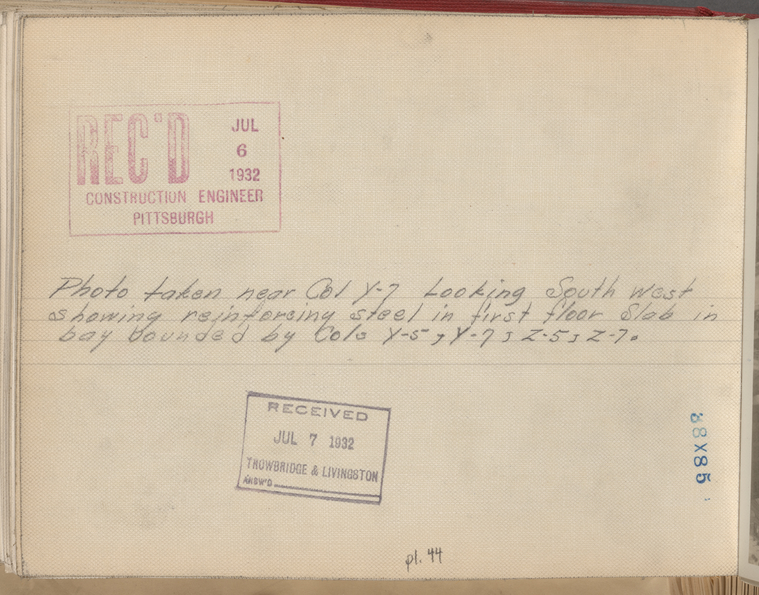 REC'D
JUL
6
1932
CONSTRUCTION ENGINEER
PITTSBURGH
Photo taken near Col Y-7 Looking South west
showing reinforcing steel in first floor Slab in
bay bounded by Cols Y-5, Y-7, Z-5, Z-7.
RECEIVED
JUL 7 1932
TROWBRIDGE & LIVINGSTON
ANSW'D
88X85
pl. 44